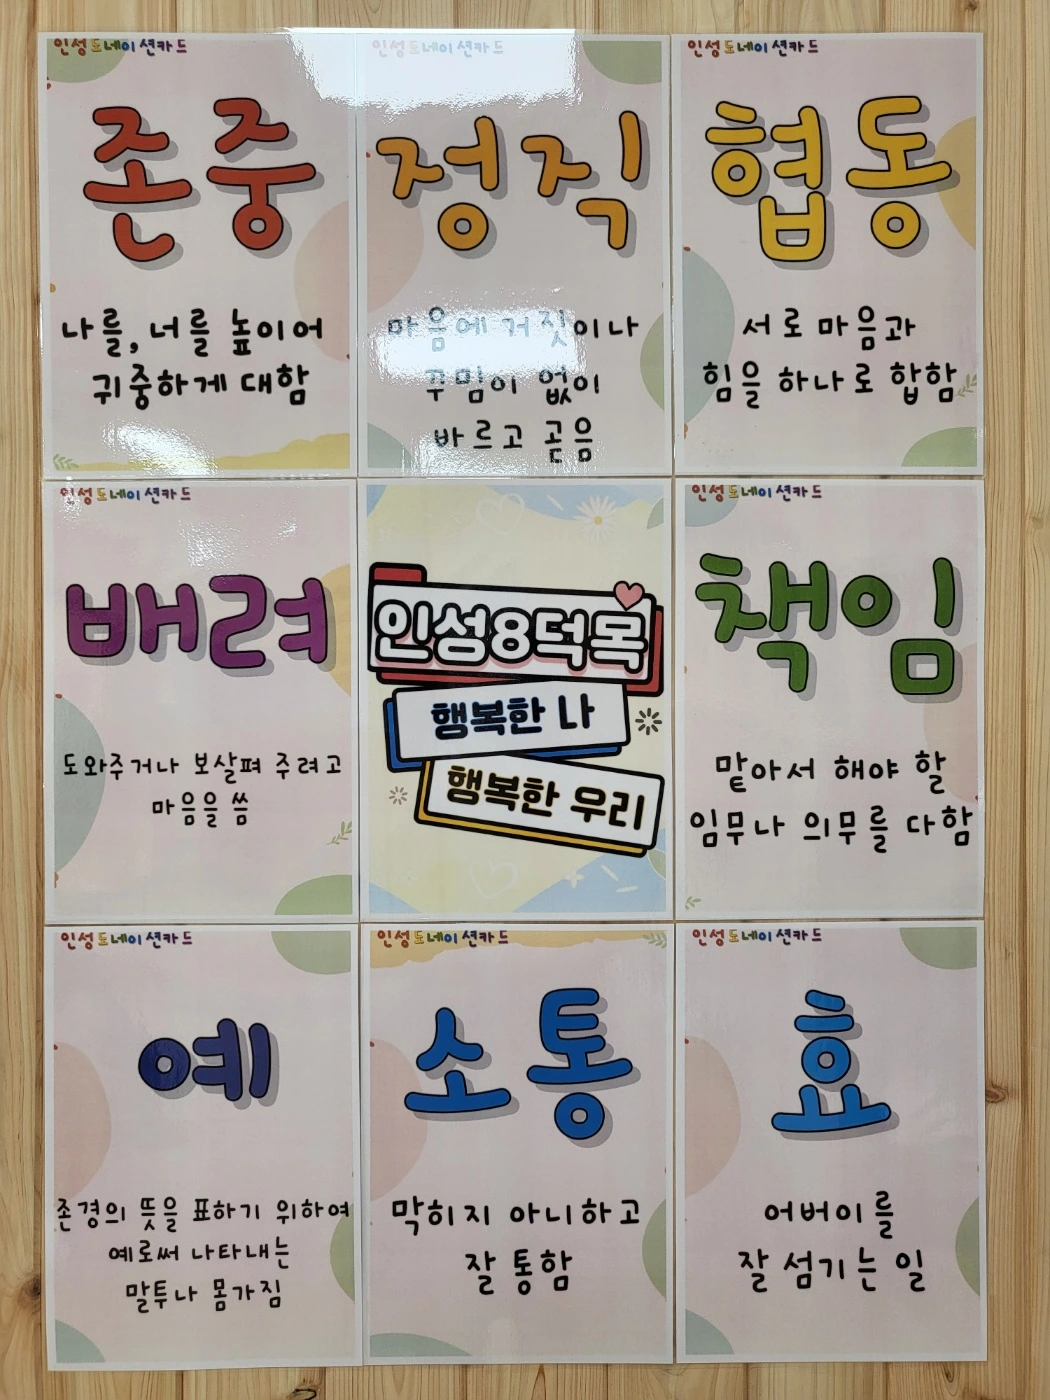 인성도네이션카드
존중
나를, 너를 높이어
귀중하게 대함
인성도네이션카드
정직
마음에 거짓이나
꾸밈이 없이
바르고 곧음
인성도네이션카드
협동
서로 마음과
힘을 하나로 합함
인성도네이션카드
배려
도와주거나 보살펴 주려고
마음을 씀
인성8덕목
행복한 나
행복한 우리
인성도네이션카드
책임
맡아서 해야 할
임무나 의무를 다함
인성도네이션카드
예
존경의 뜻을 표하기 위하여
예로써 나타내는
말투나 몸가짐
인성도네이션카드
소통
막히지 아니하고
잘 통함
인성도네이션카드
효
어버이를
잘 섬기는 일